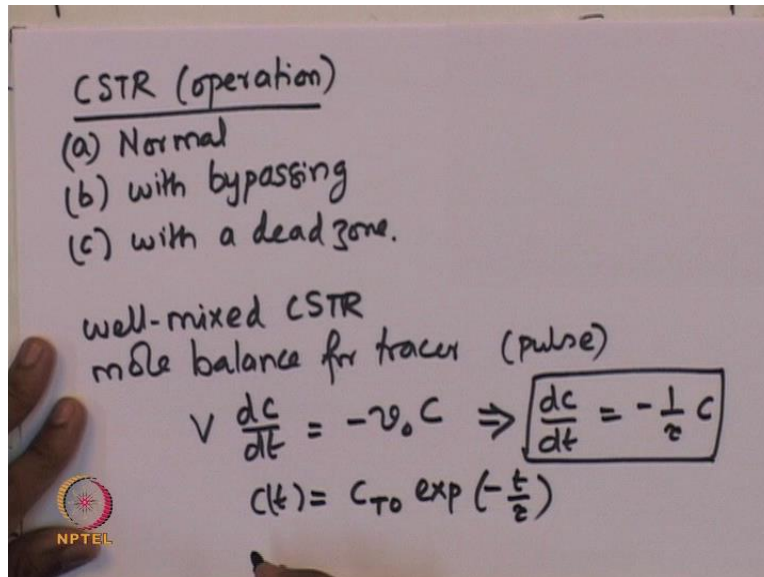 CSTR (operation)
(a) Normal
(b) with bypassing
(c) with a dead zone.
well-mixed CSTR
mole balance for tracer (pulse)
V dc/dt = -v₀ C ⇒ dc/dt = -1/τ C
C(t) = C_T0 exp(-t/τ)
NPTEL